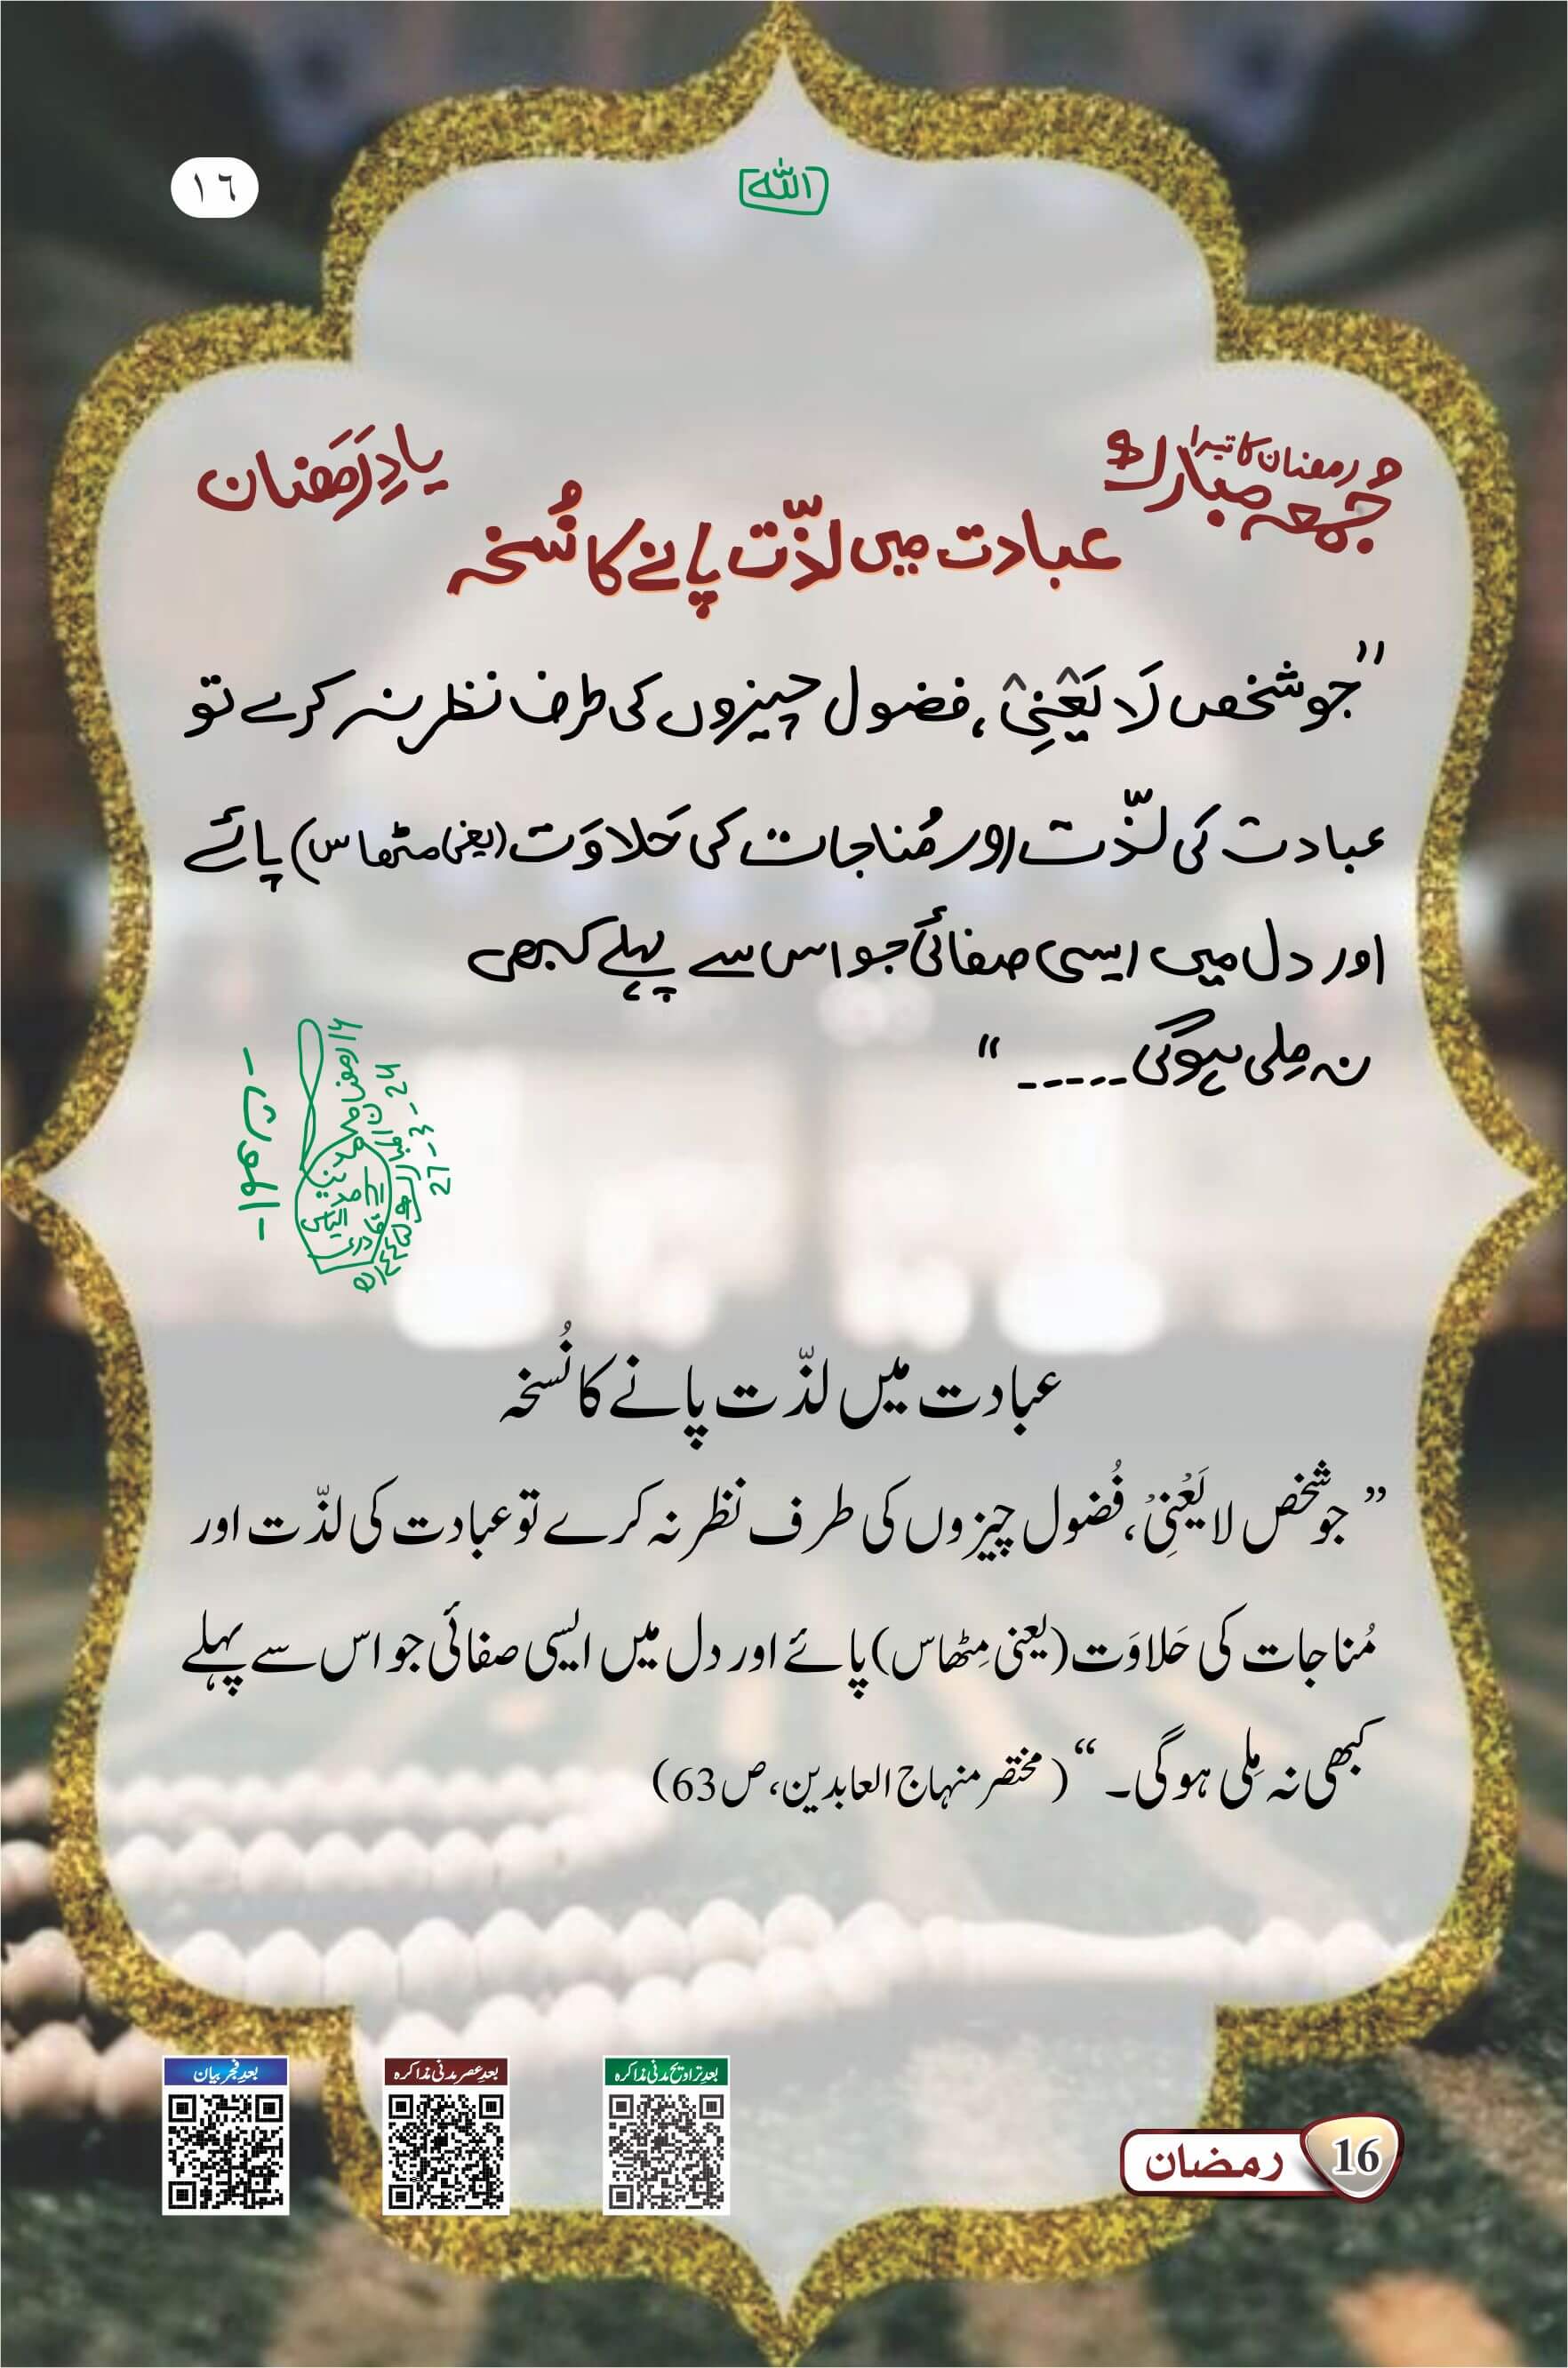 ١٦
الله
رمضان کا تیسرا
جُمعہ مبارک
یادِ رَمَضان
عبادت میں لذّت پانے کا نُسخہ
”جو شخص لَا یَعْنِیْ، فضول چیزوں کی طرف نظر نہ کرے تو
عبادت کی لذّت اور مُناجات کی حَلاوَت (یعنی مٹھاس) پائے
اور دل میں ایسی صفائی جو اس سے پہلے کبھی
نہ مِلی ہوگی-----“
-الموت-
۱۶ رمضان المبارک
27-3-24
عبادت میں لذّت پانے کا نُسخہ
”جو شخص لا یَعْنِیْ، فُضول چیزوں کی طرف نظر نہ کرے تو عبادت کی لذّت اور
مُناجات کی حَلاوَت (یعنی مِٹھاس) پائے اور دل میں ایسی صفائی جو اس سے پہلے
کبھی نہ مِلی ہوگی۔“ (مختصر منہاج العابدین، ص63)
بعدِ فجر بیان
بعدِ عصر مدنی مذاکرہ
بعدِ تراویح مدنی مذاکرہ
16 رمضان